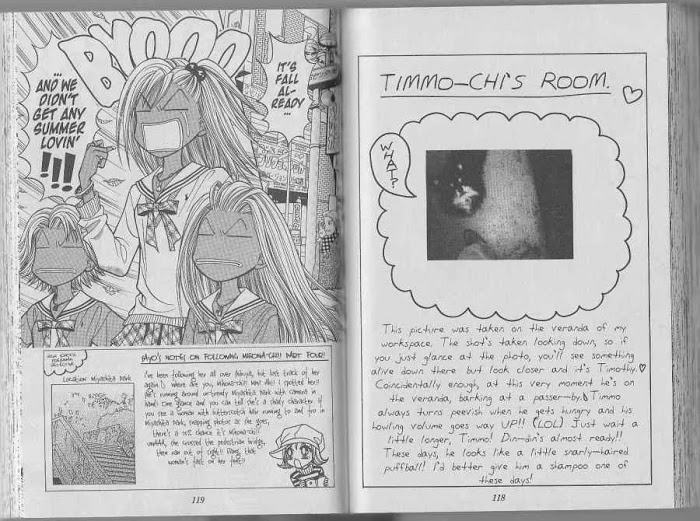 TIMMO-CHI'S ROOM.
WHAT?
This picture was taken on the veranda of my
workspace. The shot's taken looking down, so if
you just glance at the photo, you'll see something
alive down there but look closer and it's Timothy.♡
Coincidentally enough, at this very moment he's on
the veranda, barking at a passer-by. Timmo
always turns peevish when he gets hungry and his
howling volume goes way UP!! (LOL) Just wait a
little longer, Timmo! Din-din's almost ready!!
These days, he looks like a little snarly-haired
puffball! I'd better give him a shampoo one of
these days!
118
BYOOO
IT'S
FALL
AL-
READY
...
...
AND WE
DIDN'T
GET ANY
SUMMER
LOVIN'
!!!
NOTES ON FOLLOWING MIHONA-CHI!! PART FOUR!!
Location: Miyashita Park
I've been following her all over Shibuya, but lost track of her
again!! Where are you, Mihona-chi? I spotted her!!
She's running around un-trendy Miyashita Park with camera in
hand! One glance and you can tell she's a shady character. If
you see a woman with butterscotch hair running to and fro in
Miyashita Park, snapping photos as she goes,
there's a chance it's Mihona-chi!!
she crossed the pedestrian bridge,
then ran out of sight!! Dang, that
woman's fast on her feet!!
119